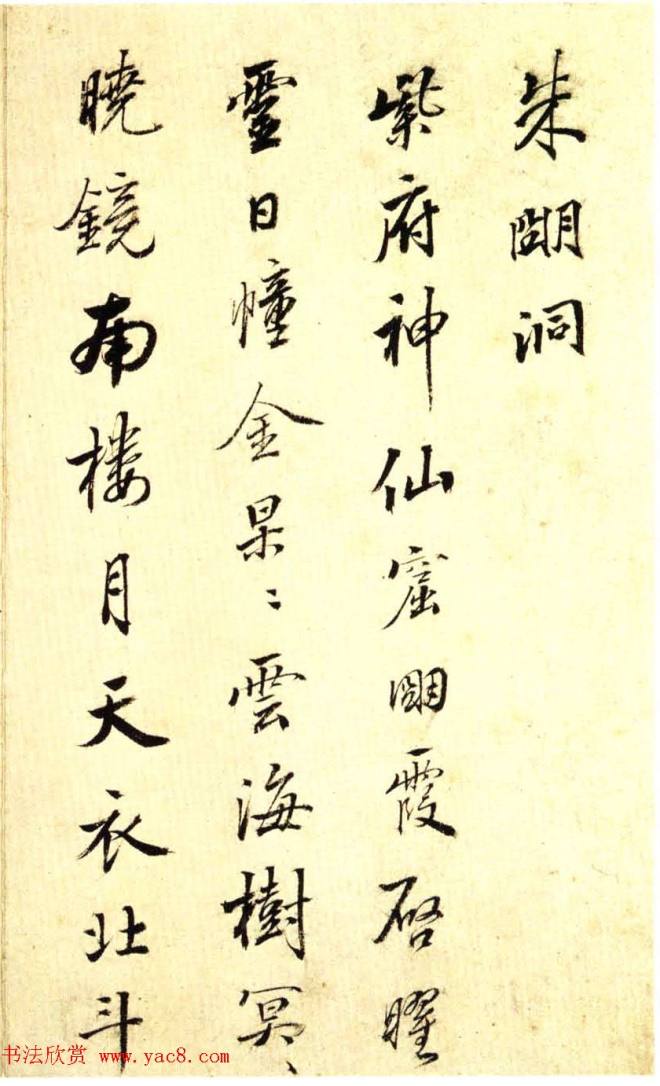 朱朙洞
紫府神仙窟朙霞启曜
靈日幢金杲〻雲海樹冥〻
曉鏡南樓月天衣北斗
书法欣赏 www.yac8.com